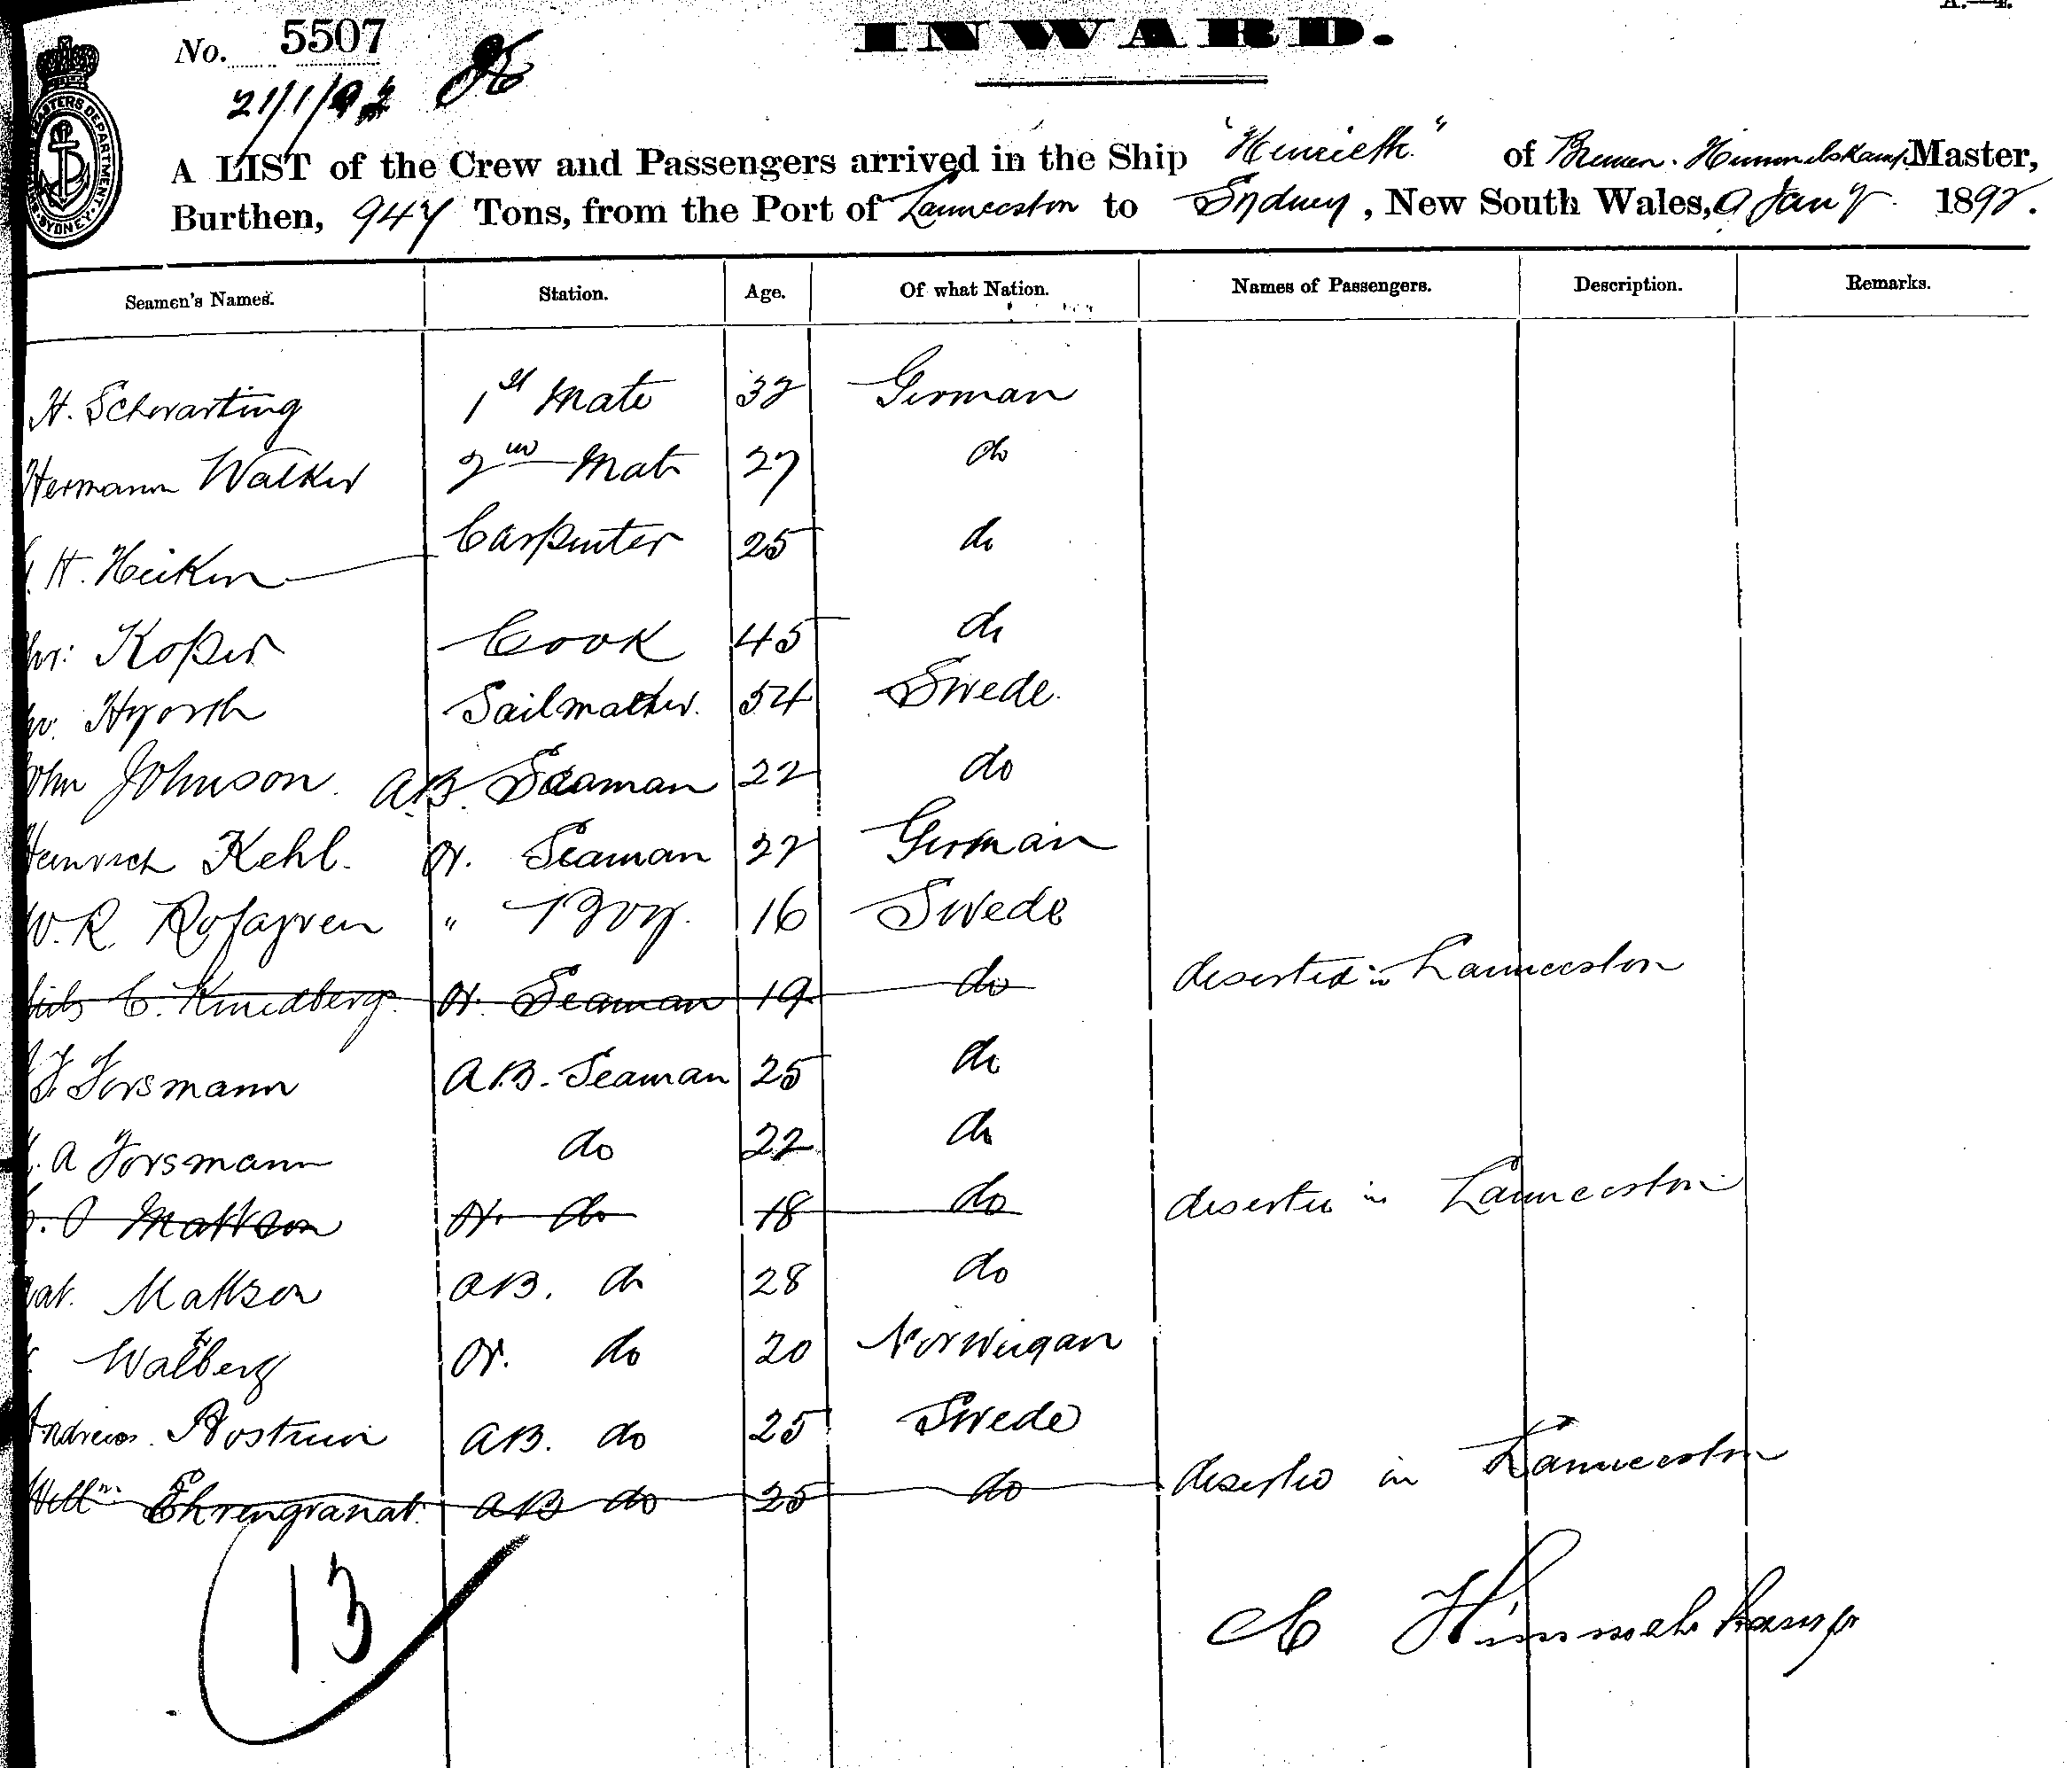 No. 5507
INWARD.
21/1/92
A LIST of the Crew and Passengers arrived in the Ship "Henrieth" of Bremen. Himmelskamp Master,
Burthen, 947 Tons, from the Port of Launceston to Sydney, New South Wales, 9 Jany 1892.
Seamen's Names. Station. Age. Of what Nation. Names of Passengers. Description. Remarks.
H. Schwarting 1st Mate 32 German
Hermann Walker 2nd Mate 27 do
H. Heiken Carpenter 25 do
Koper Cook 45 do
Hyorth Sailmaker. 54 Swede.
John Johnson. AB. Seaman 22 do
Heinrich Kehl. Or. Seaman 22 German
W. R. " Boy. 16 Swede
C. Kindberg. Or. Seaman 19 do deserted in Launceston
F. Forsmann AB. Seaman 25 do
A Forsmann do 22 do
O Mattson Or. do 18 do deserted in Launceston
Mattson AB. do 28 do
Walberg Or. do 20 Norweigan
Andreas AB. do 25 Swede
Willm. Ehrengranat. AB do 25 do deserted in Launceston
13
C Himmelskamp